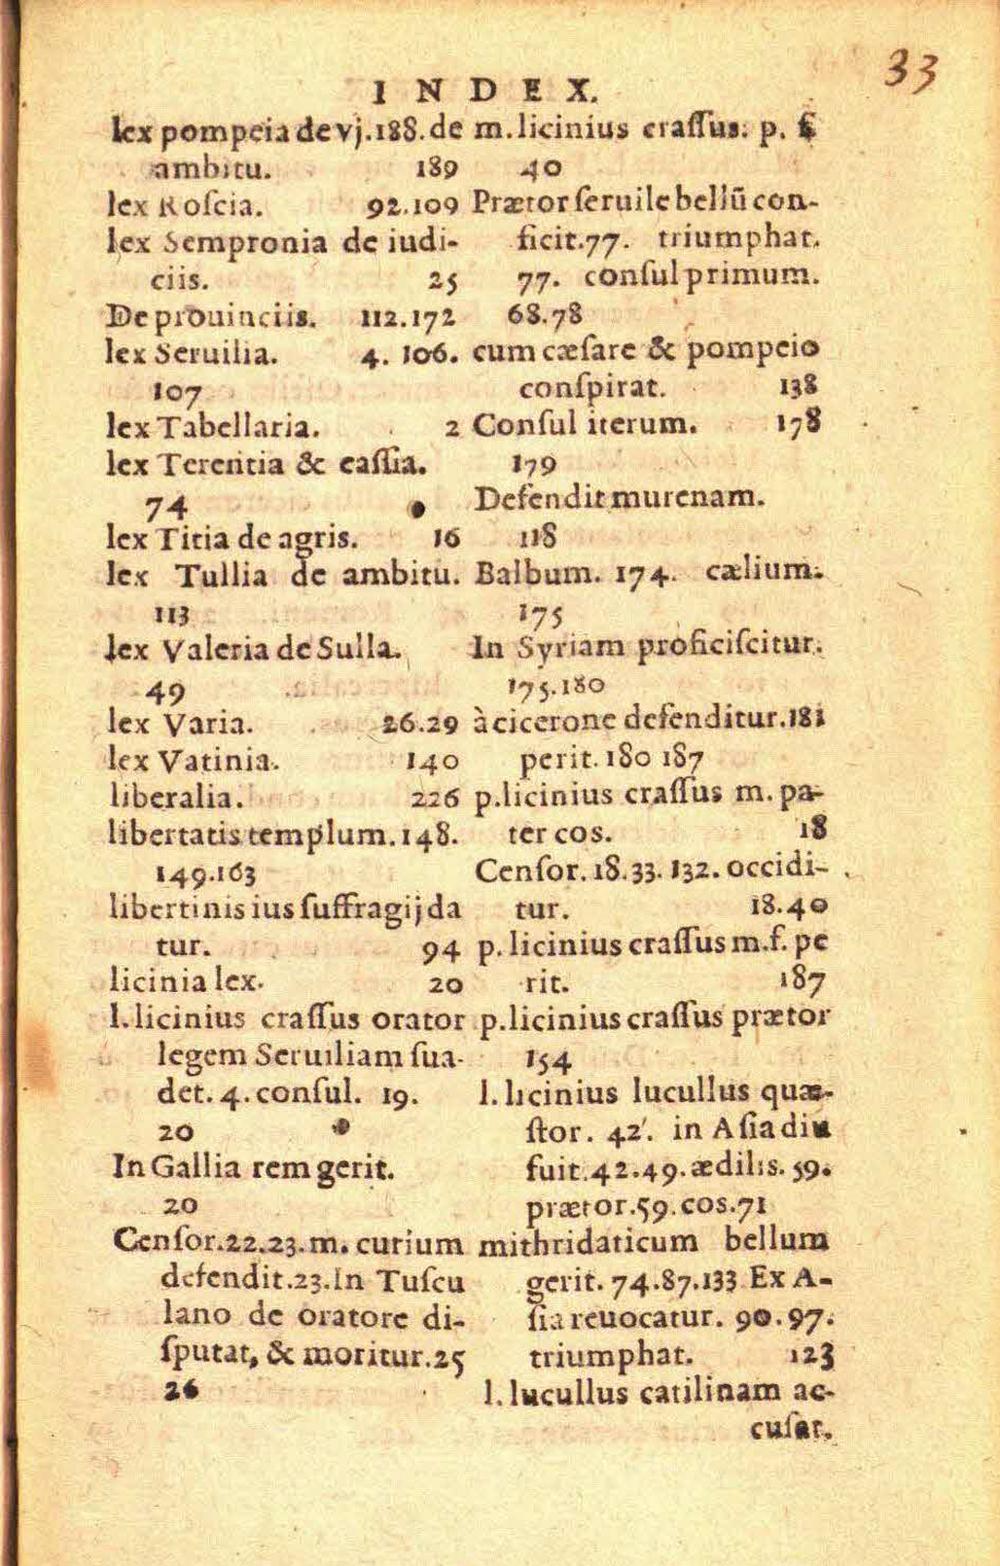 33
INDEX.
lex pompeia de vj.188.de
ambitu. 189
lex Roſcia. 92.109
lex Sempronia de iudi-
ciis. 25
De prouinciis. 112.172
lex Seruilia. 4. 106.
107
lex Tabellaria. 2
lex Terentia & caſſia.
74
lex Titia de agris. 16
lex Tullia de ambitu.
113
lex Valeria de Sulla.
49
lex Varia. 26.29
lex Vatinia. 140
liberalia. 226
libertatis templum. 148.
149.163
libertinis ius ſuffragij da
tur. 94
licinia lex. 20
l. licinius craſſus orator
legem Seruiliam ſua-
det. 4. conſul. 19.
20
In Gallia rem gerit.
20
Cenſor.22.23.m. curium
defendit.23.In Tuſcu
lano de oratore di-
ſputat, & moritur.25
26
m. licinius craſſus. p. f
40
Prætor ſeruile bellū con-
ficit.77. triumphat.
77. conſul primum.
68.78
cum cæſare & pompeio
conſpirat. 138
Conſul iterum. 178
179
Defendit murenam.
118
Balbum. 174. cælium.
175
In Syriam proficiſcitur.
175.180
à cicerone defenditur.181
perit. 180 187
p.licinius craſſus m. pa-
ter cos. 18
Cenſor. 18.33. 132. occidi-
tur. 18.40
p. licinius craſſus m.f. pe
rit. 187
p.licinius craſſus prætor
154
l. licinius lucullus quæ-
ſtor. 42. in Aſia diu
fuit.42.49.ædilis. 59.
prætor.59.cos.71
mithridaticum bellum
gerit. 74.87.133 Ex A-
ſia reuocatur. 90.97.
triumphat. 123
l. lucullus catilinam ac-
cuſat.